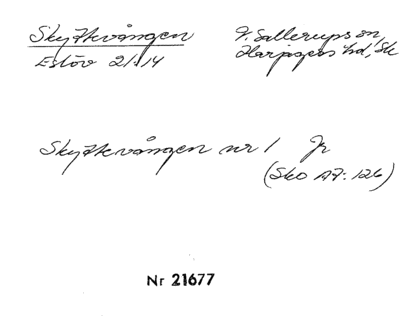 Skyttevången V. Sallerups sn,
Eslöv 21:14 Harjagers hd, Sk
Skyttevången nr 1 Jr
(Sko A7:126)
Nr 21677